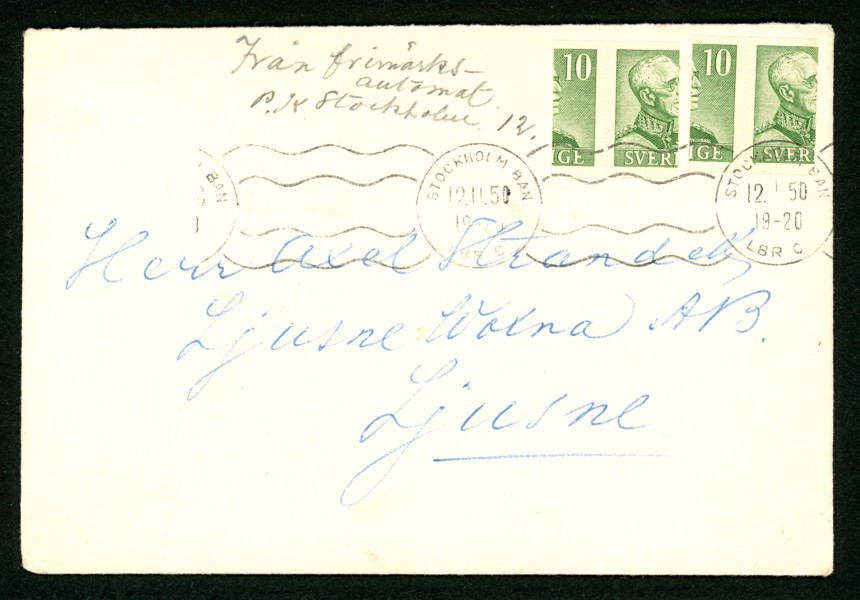 Från frimärks-
automat
P.K Stockholm 12.
10
10
IGE
SVERI
IGE
SVER
STOCKHOLM BAN
12.11.50
19-20
LBR C
STOCKHOLM BAN
12. 1 50
19-20
LBR C
BAN
Herr Axel Strandell,
Ljusne Woxna AB.
Ljusne